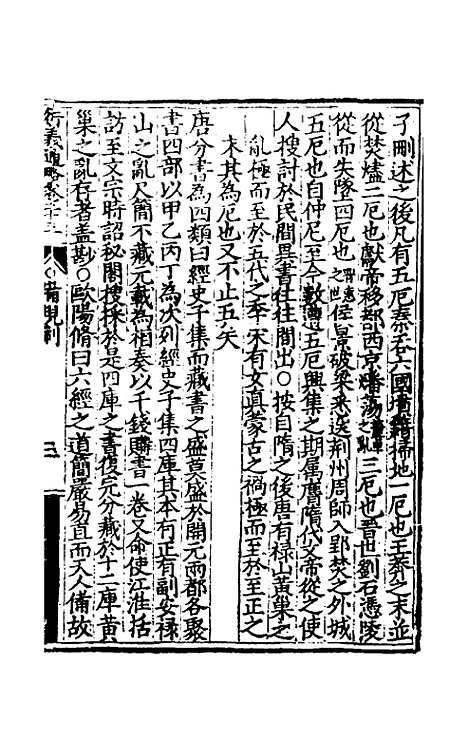 子刪述之後凡有五厄秦吞六國墳籍掃地一厄也王莽之末並
從焚燼二厄也獻帝移都西京燔蕩之亂三厄也晉世劉石憑陵
從而失墜四厄也之世侯景破梁悉送荆州周師入郢焚之外城
五厄也自仲尼至今數遭五厄興集之期屬膺隋代文帝從之使
人搜討於民間異書往往間出○按自隋之後唐有禄山黃巢之
亂極而至於五代之季宋有女真蒙古之禍極而至於至正之
末其為厄也又不止五矣
唐分書為四類曰經史子集而藏書之盛莫盛於開元兩都各聚
書四部以甲乙丙丁為次列經史子集四庫其本有正有副安祿
山之亂尺簡不藏元載為相奏以千錢購書一卷又命使江淮括
訪至文宗時詔秘閣搜採於是四庫之書復完分藏於十二庫黃
巢之亂存者盖尠○歐陽脩曰六經之道簡嚴易直而天人備故
衍義通略卷二十三
三